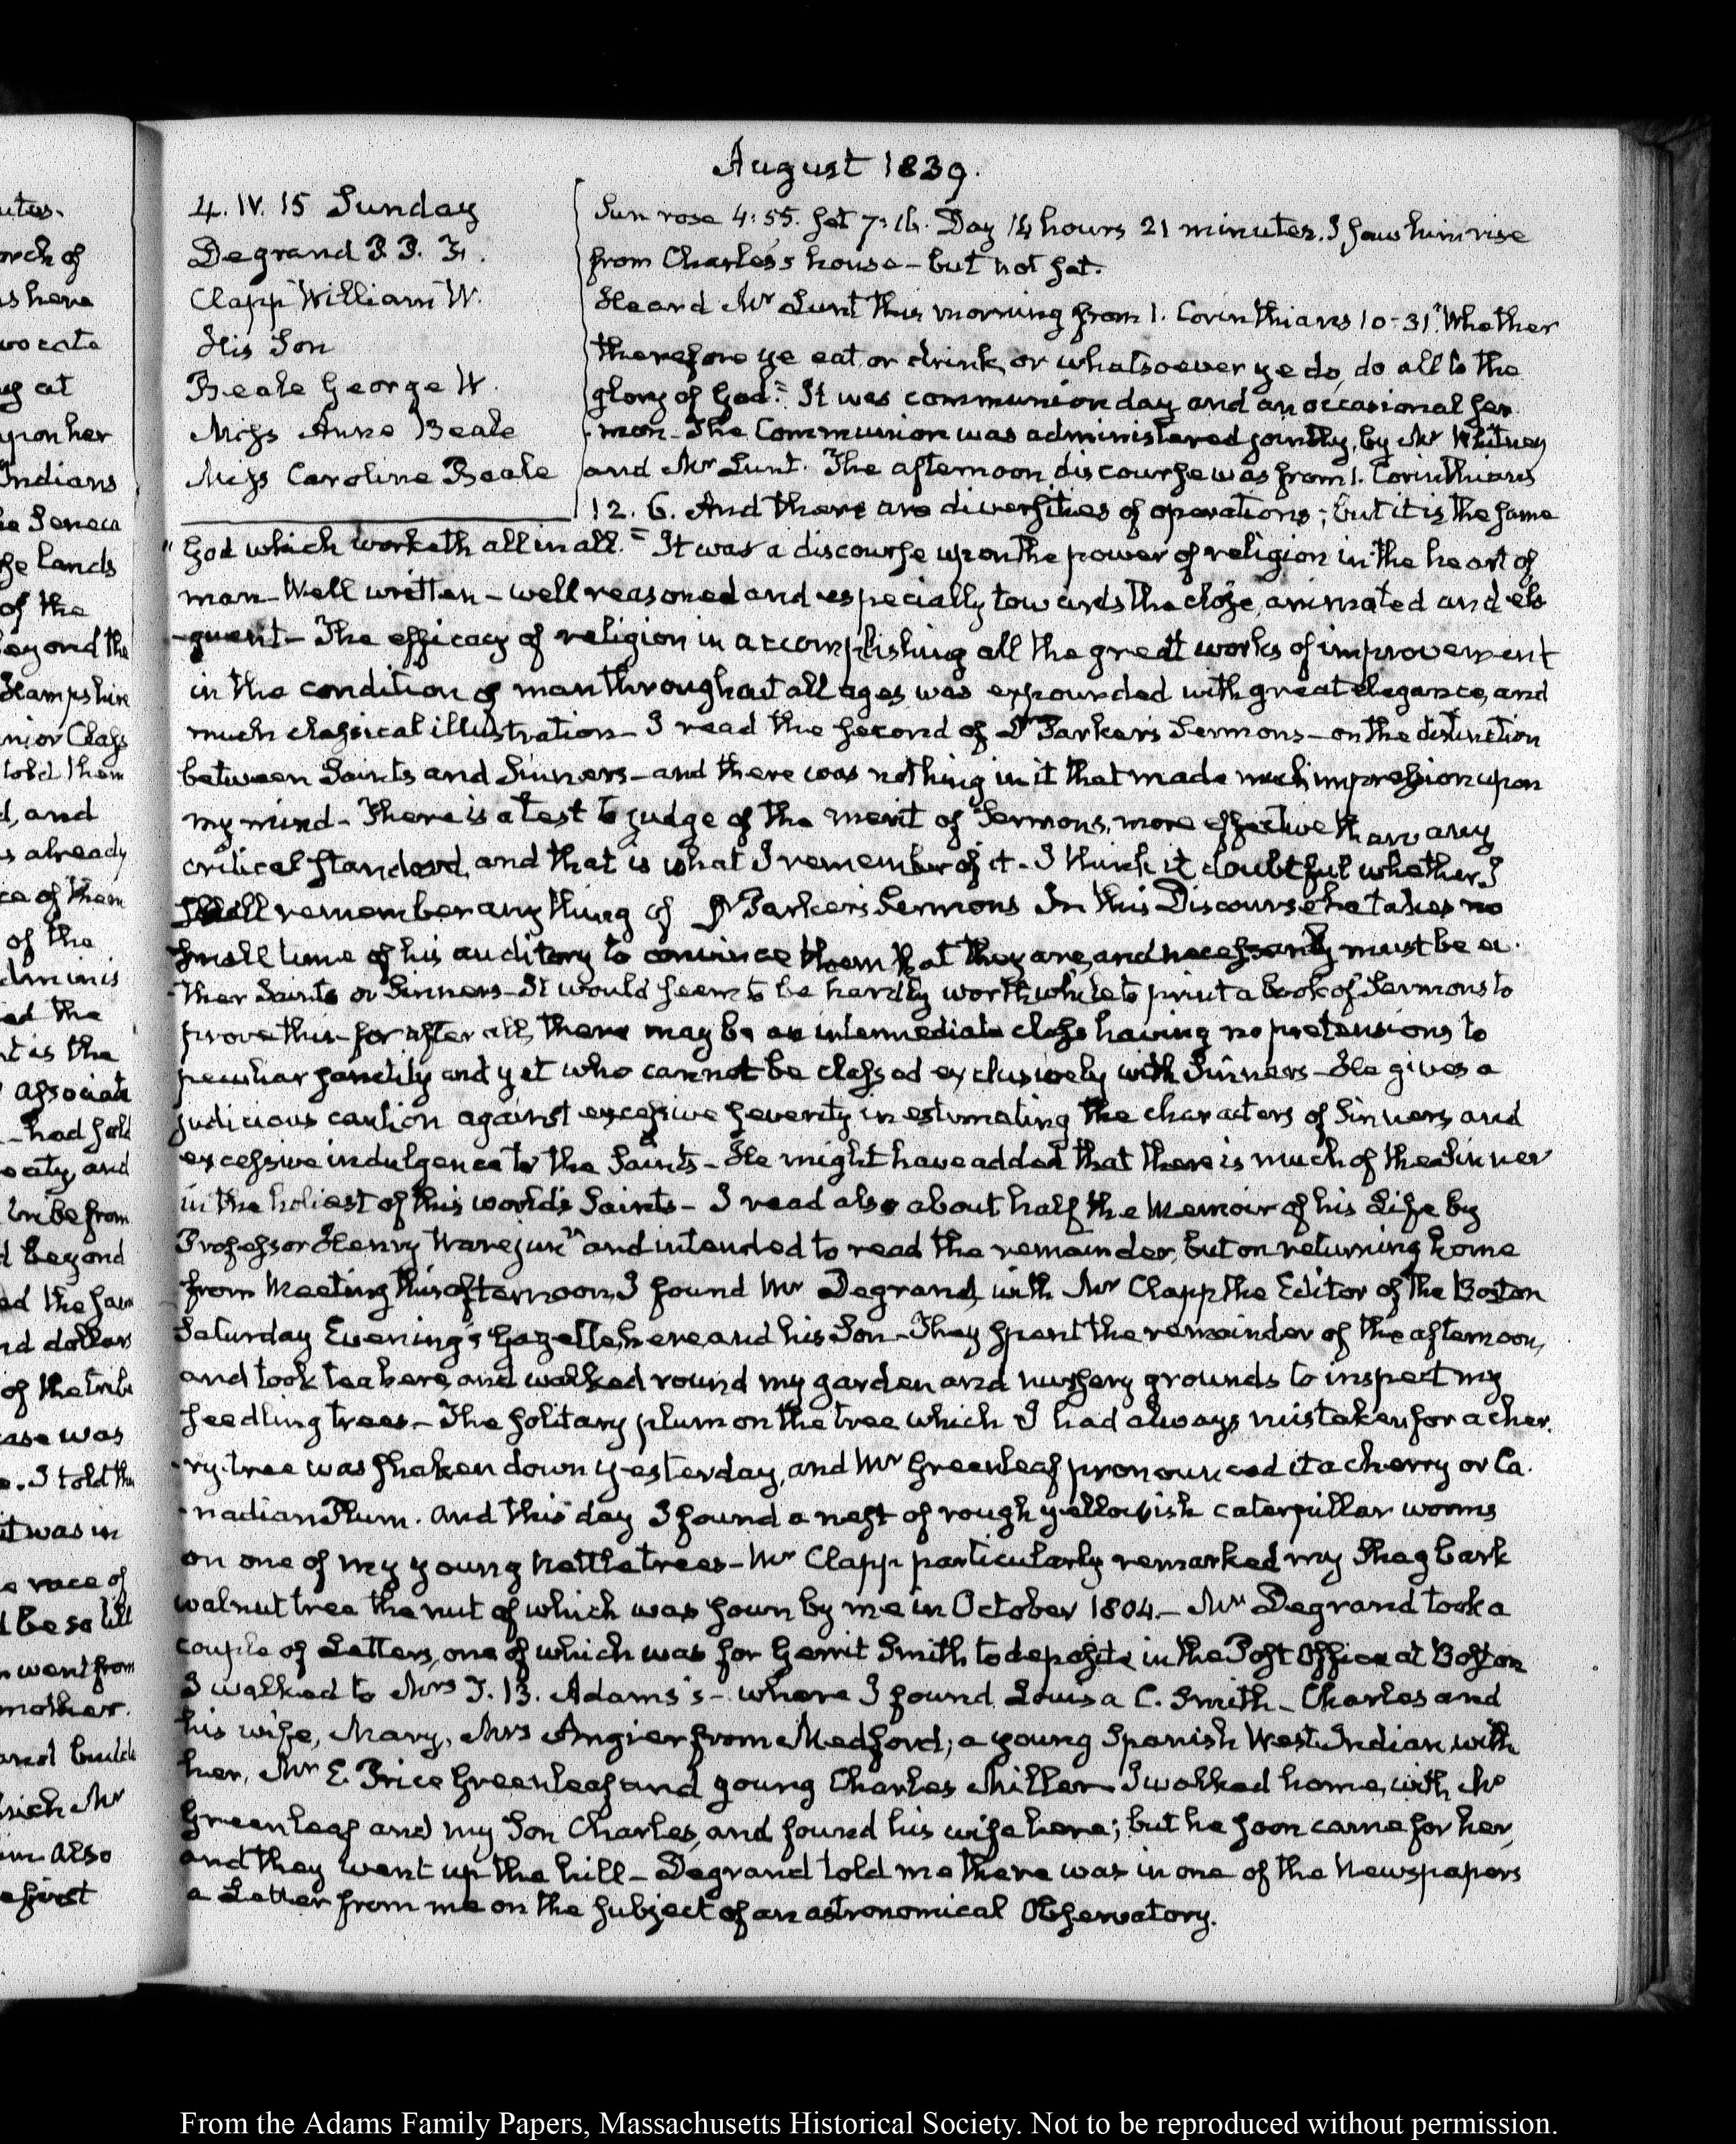 August 1839.
4. IV. 15 Sunday
Degrand P. P. F.
Clapp William W.
His Son
Beale George W.
Miss Anne Beale
Miss Caroline Beale
Sun rose 4:55. Set 7:16. Day 14 hours 21 minutes. I saw him rise
from Charles's house – but not set.
Heard Mr Lunt this morning from 1. Corinthians 10-31. "Whether
therefore ye eat or drink, or whatsoever ye do, do all to the
glory of God." It was communion day and an occasional ser-
-mon. The Communion was administered jointly, by Mr Whitney
and Mr Lunt. The afternoon discourse was from 1. Corinthians
12. 6. And there are diversities of operations; but it is the same
"God which worketh all in all." It was a discourse upon the power of religion in the heart of
man – Well written – well reasoned and especially towards the close, animated and elo
-quent – The efficacy of religion in accomplishing all the great works of improvement
in the condition of man throughout all ages was expounded with great elegance, and
much classical illustration – I read the second of Dr Parker's Sermons – on the distinction
between Saints and Sinners – and there was nothing in it that made much impression upon
my mind – There is a test to judge of the merit of Sermons, more effective than any
critical standard, and that is what I remember of it – I think it doubtful whether I
shall remember any thing of Dr Parker's Sermons In this Discourse he takes no
small time of his auditory to convince them that they are, and necessarily must be ei-
-ther Saints or Sinners – It would seem to be hardly worth while to print a book of Sermons to
prove this – for after all, there may be an intermediate class having no pretensions to
peculiar sanctity and yet who cannot be classed exclusively with Sinners – He gives a
judicious caution against excessive severity in estimating the characters of Sinners and
excessive indulgence to the Saints – He might have added that there is much of the Sinner
in the holiest of this world's Saints – I read also about half the Memoir of his Life by
Professor Henry Ware junr and intended to read the remainder, but on returning home
from Meeting this afternoon, I found Mr Degrand, with Mr Clapp the Editor of the Boston
Saturday Evening's Gazette here, and his Son – They spent the remainder of the afternoon,
and took tea here, and walked round my garden and nursery grounds to inspect my
seedling trees – The solitary plum on the tree which I had always mistaken for a cher-
-ry tree was shaken down yesterday, and Mr Greenleaf pronounced it a cherry or Ca-
-nadian Plum. and this day I found a nest of rough yellowish caterpillar worms
on one of my young nettle trees – Mr Clapp particularly remarked my Shagbark
walnut tree the nut of which was sown by me in October 1804 – Mr Degrand took a
couple of Letters, one of which was for Gerrit Smith to deposite in the Post Office at Boston
I walked to Mrs T. B. Adams's – where I found Louisa C. Smith – Charles and
his wife, Mary, Mrs Angier from Medford; a young Spanish West Indian with
her, Mr E. Price Greenleaf and young Charles Miller – I walked home, with Mr
Greenleaf and my Son Charles, and found his wife here; but he soon came for her,
and they went up the hill – Degrand told me there was in one of the Newspapers
a Letter from me on the subject of an astronomical Observatory.
From the Adams Family Papers, Massachusetts Historical Society. Not to be reproduced without permission.